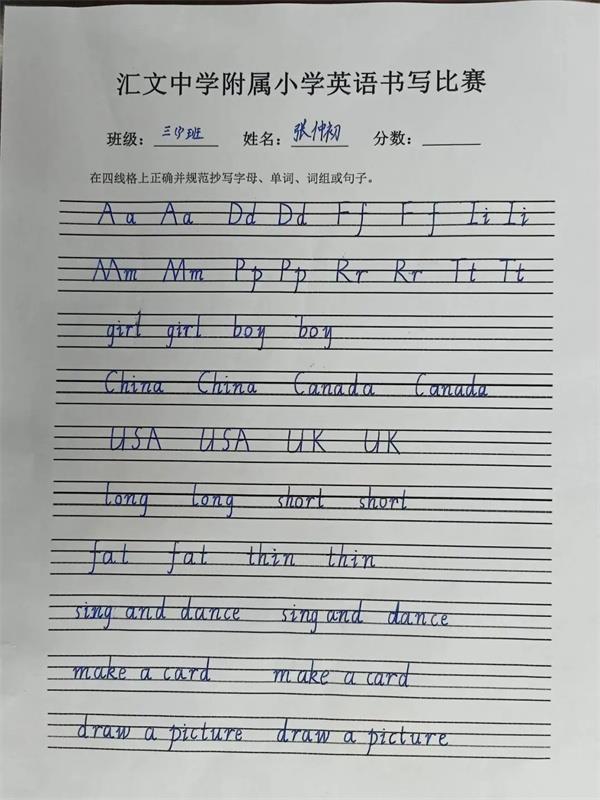 汇文中学附属小学英语书写比赛
班级: 三(7)班 姓名: 张仲初 分数:
在四线格上正确并规范抄写字母、单词、词组或句子。
Aa Aa Dd Dd Ff Ff Ii Ii
Mm Mm Pp Pp Rr Rr Tt Tt
girl girl boy boy
China China Canada Canada
USA USA UK UK
long long short short
fat fat thin thin
sing and dance sing and dance
make a card make a card
draw a picture draw a picture